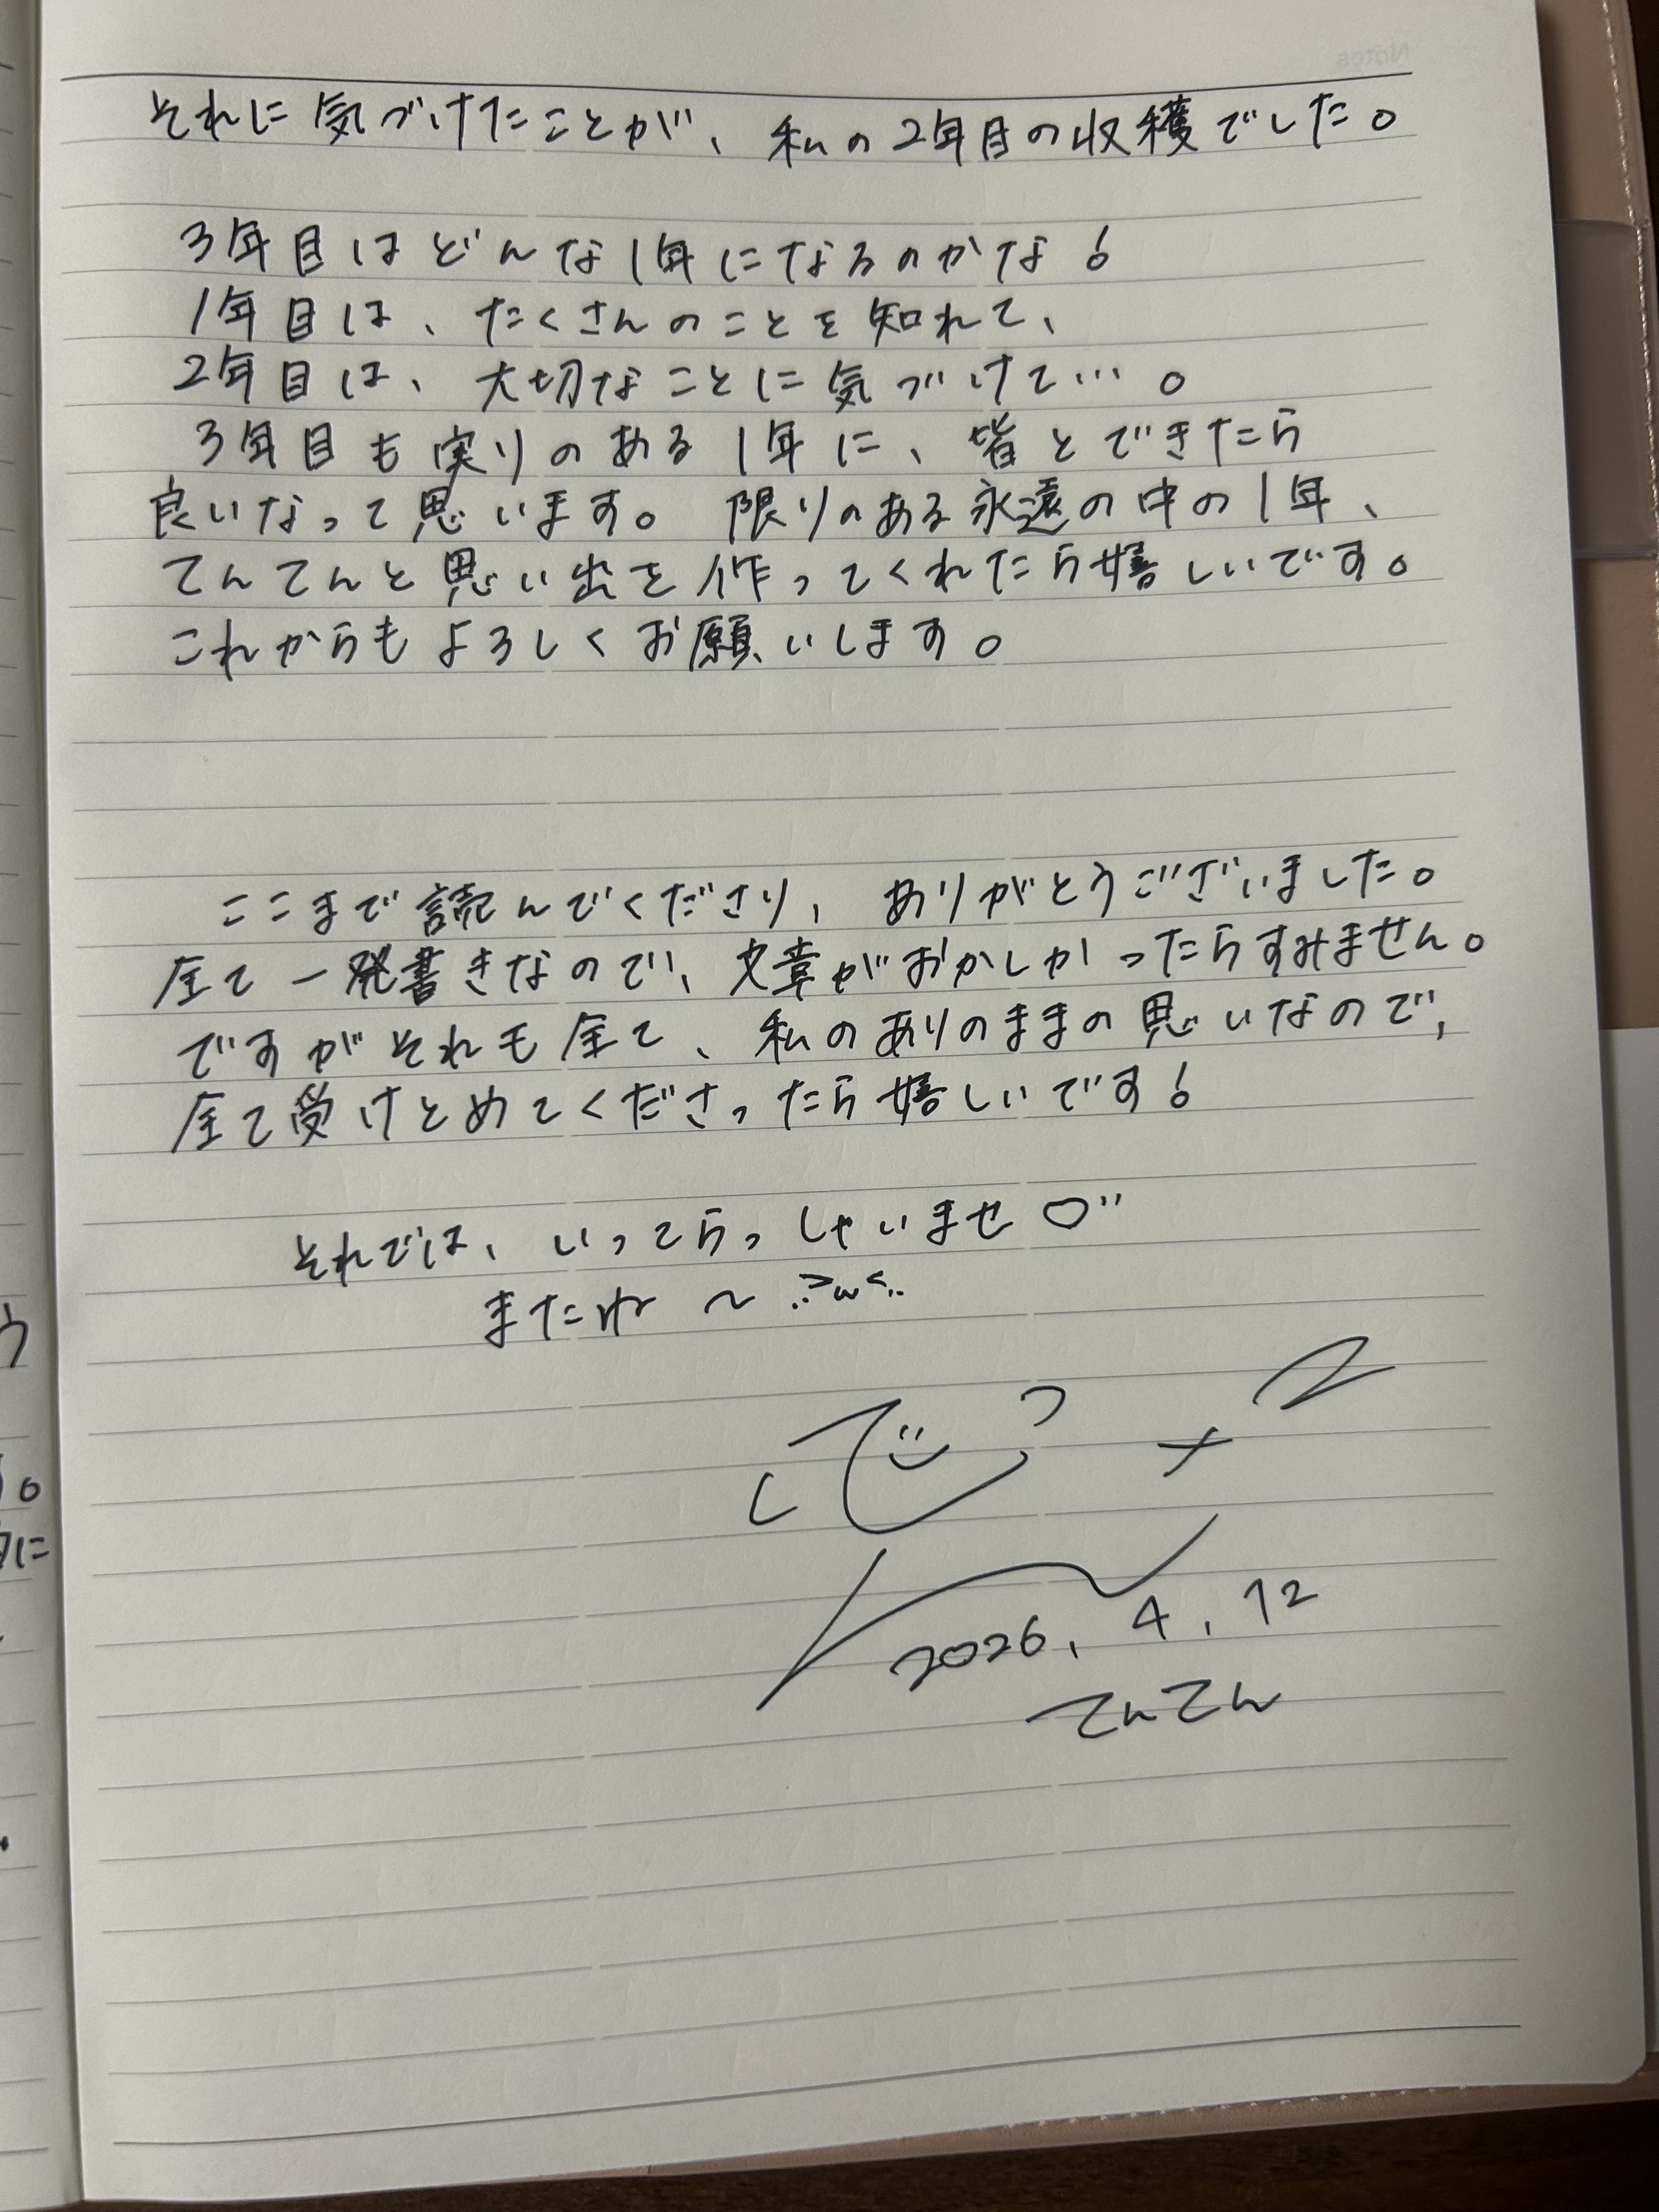 それに気づけたことが、私の2年目の収穫でした。
3年目はどんな1年になるのかな!
1年目は、たくさんのことを知れて、
2年目は、大切なことに気づけて…。
3年目も実りのある1年に、皆とできたら
良いなって思います。限りのある永遠の中の1年、
てんてんと思い出を作ってくれたら嬉しいです。
これからもよろしくお願いします。
ここまで読んでくださり、ありがとうございました。
全て一発書きなので、文章がおかしかったらすみません。
ですがそれも全て、私のありのままの思いなので、
全て受けとめてくださったら嬉しいです!
それでは、いってらっしゃいませ♡"
またね〜
2026.4.12
てんてん